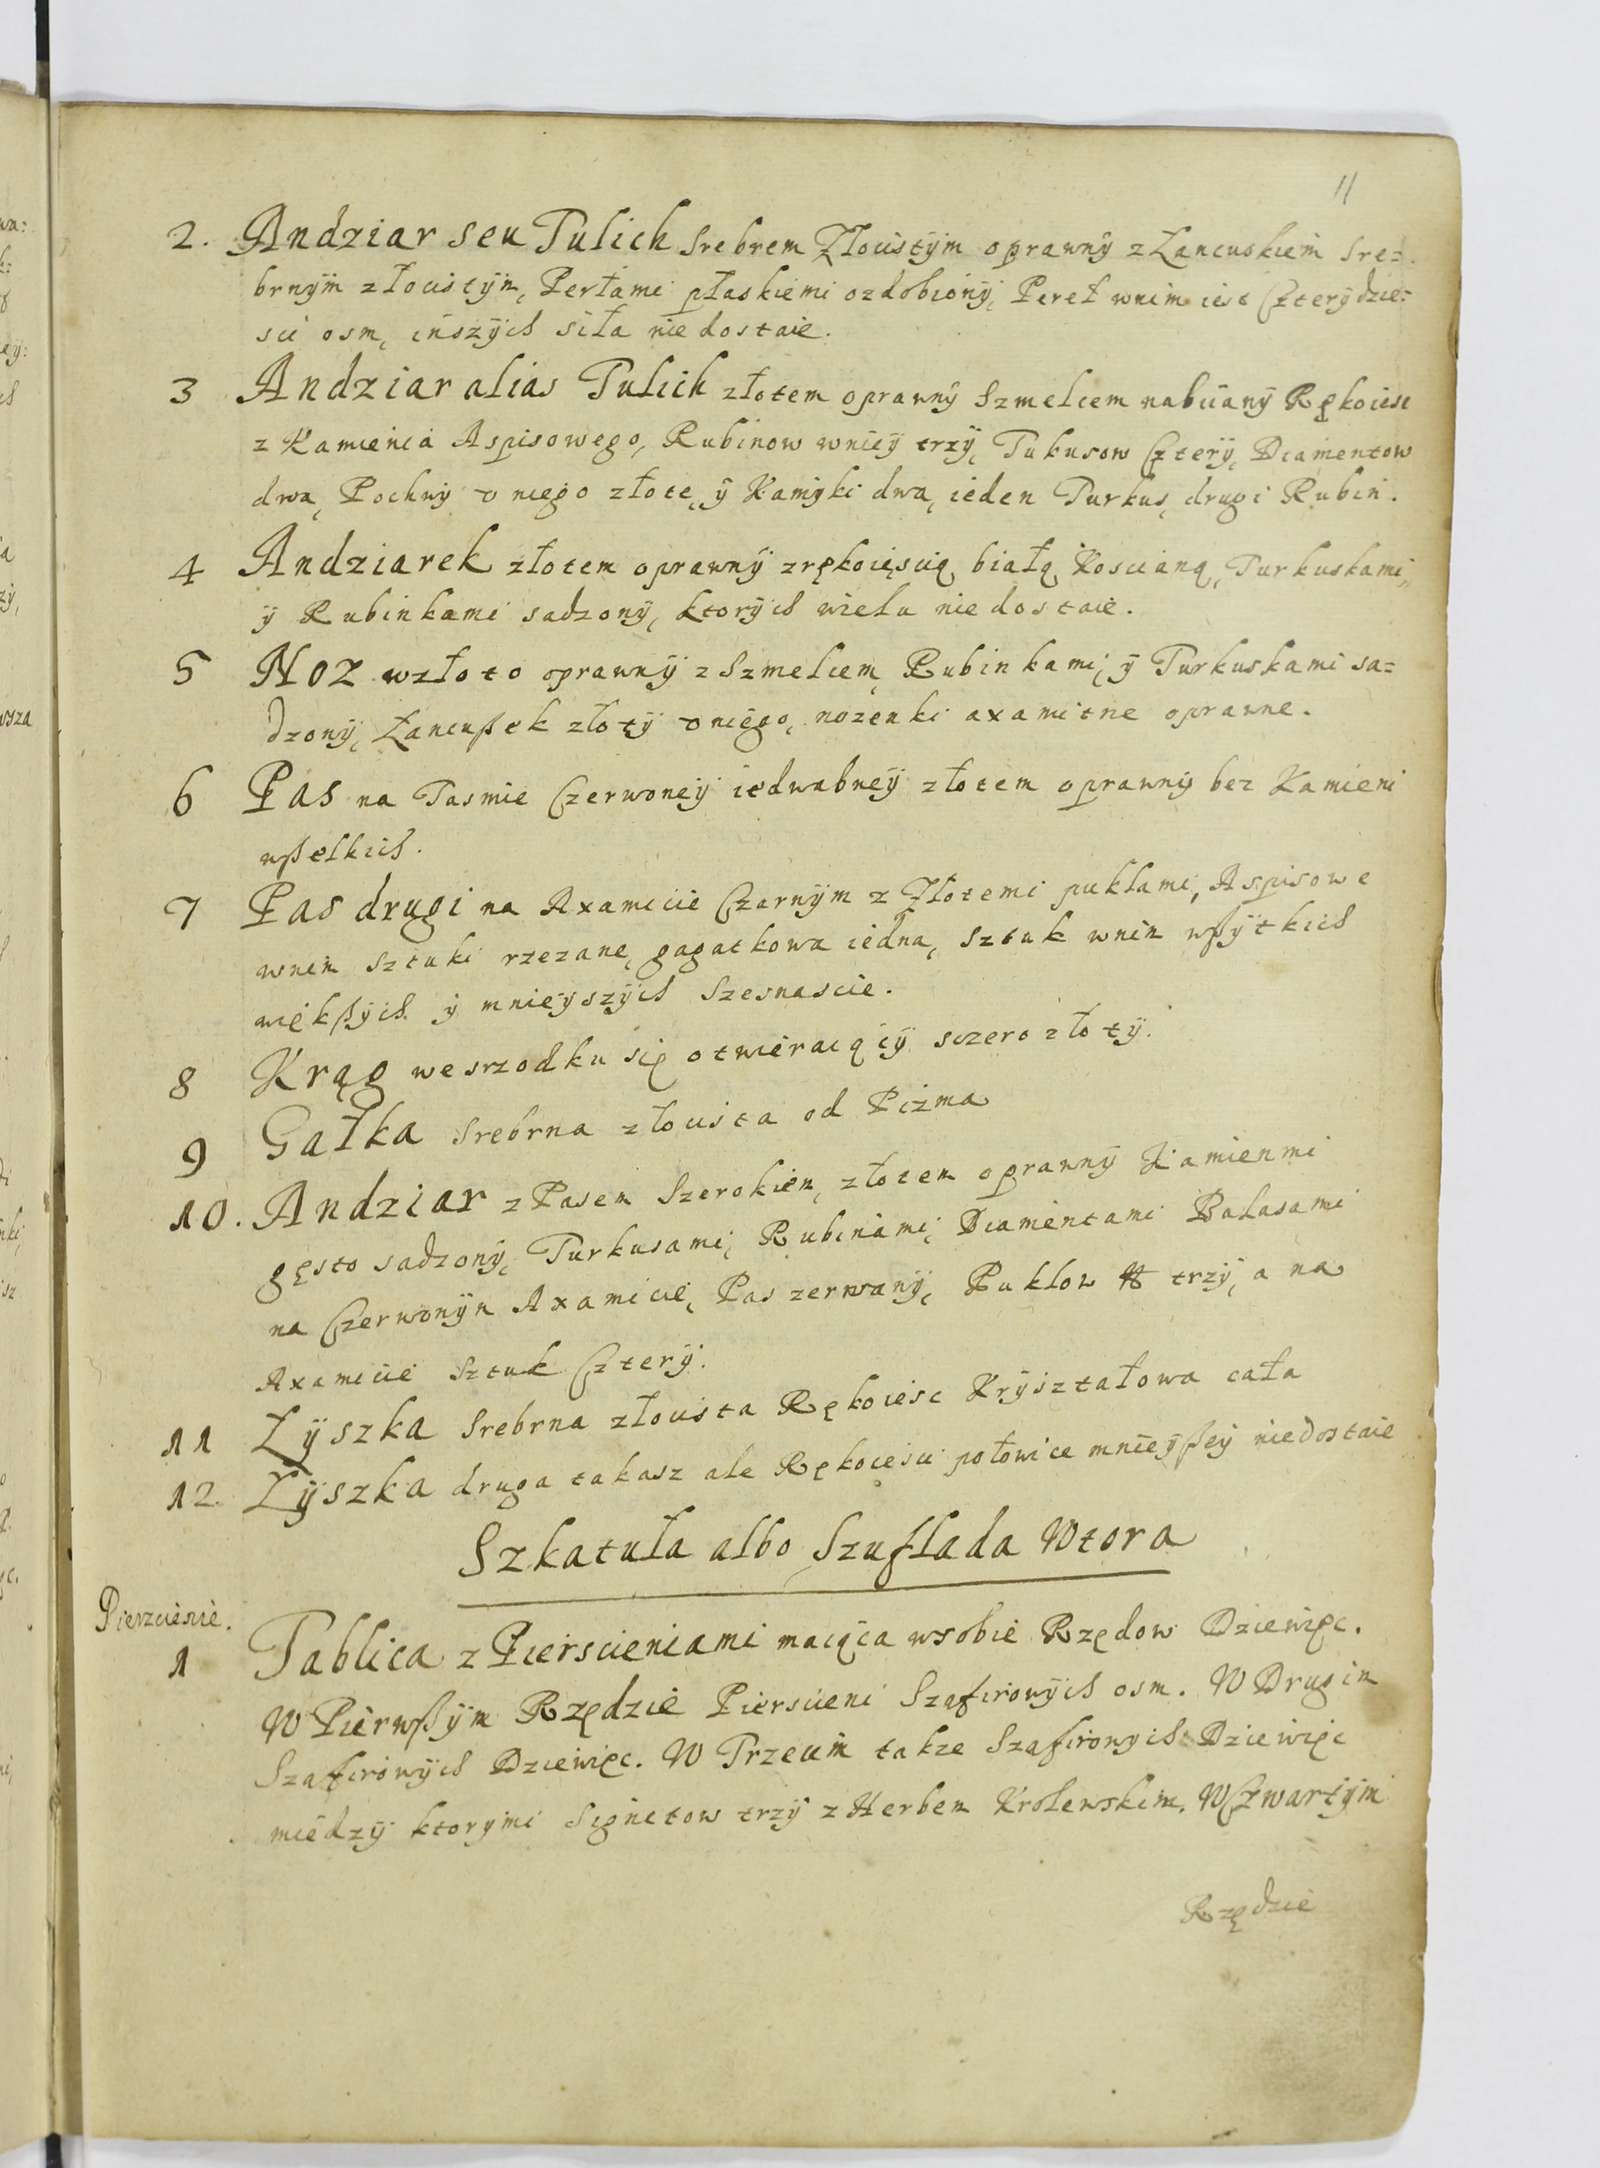 11
2. Andziar seu Pulich srebrem Złoцistÿm oprawnÿ z Łancuskiem sre=
brnÿm złocistÿm, Perłami płaskiemi ozdobionÿ, Pereł wnim iest Czterÿdzie=
sci osm, inszÿch siła nie dostaie.
3 Andziar alias Pulich złotem oprawnÿ Szmelcem nabiianÿ Rękoiesc
z Kamienia Aspisowego, Rubinow wnieÿ trzÿ, Tukusow Czterÿ, Diamentow
dwa, Pochwÿ v niego złote, ÿ Kamÿki dwa, ieden Turkus, drugi Rubin.
4 Andziarek złotem oprawnÿ zrękoięscią białą Koscianą, Turkuskami
ÿ Rubinkami sadzonÿ, ktorÿch wielu nie dostaie.
5 Noz wzłoto oprawnÿ z Szmelcem, Rubinkami, ÿ Turkuskami sa=
dzonÿ, Łancußek złotÿ v niego, nozenki axamitne oprawne.
6 Pas na Tasmie Czerwoneÿ iedwabneÿ złotem oprawnÿ bez Kamieni
wßelkich.
7 Pas drugi na Axamicie Czarnÿm z Złotemi puklami, Aspisowe
wnim sztuki rzezane, gagatkowa iedna, sztuk wnim wßÿtkich
więkßÿch ÿ mnieÿszÿch szesnascie.
8 Krąg wesrzodku się otwieraiącÿ sczero złotÿ.
9 Gałka srebrna złocista od Piżma
10. Andziar z Pasem Szerokiem, złotem oprawnÿ Kamienmi
gęsto sadzonÿ, Turkusami, Rubinami, Diamentami Balasami
na Czerwonÿm Axamicie, Pas zerwanÿ, Puklow trzÿ, a na
Axamicie Sztuk Czterÿ.
11 Łÿszka srebrna złocista Rękoiesc Krÿształowa cała
12. Łÿszka druga takasz ale Rękoiesci połowice mnieÿßeÿ niedostaie
Szkatuła albo Szuflada Wtora
Pierzcienie.
1 Tablica z Pierscieniami maiąca wsobie Rzędow Dziewięc.
W Pierwßÿm Rzędzie Pierscieni Szafirowÿch osm. W Drugim
Szafirowÿch Dziewięc. W Trzecim takze Szafirowych Dziewięc
miedzÿ ktorymi Signetow trzÿ z Herbem Krolewskim. W Czwartÿm
Rzędzie